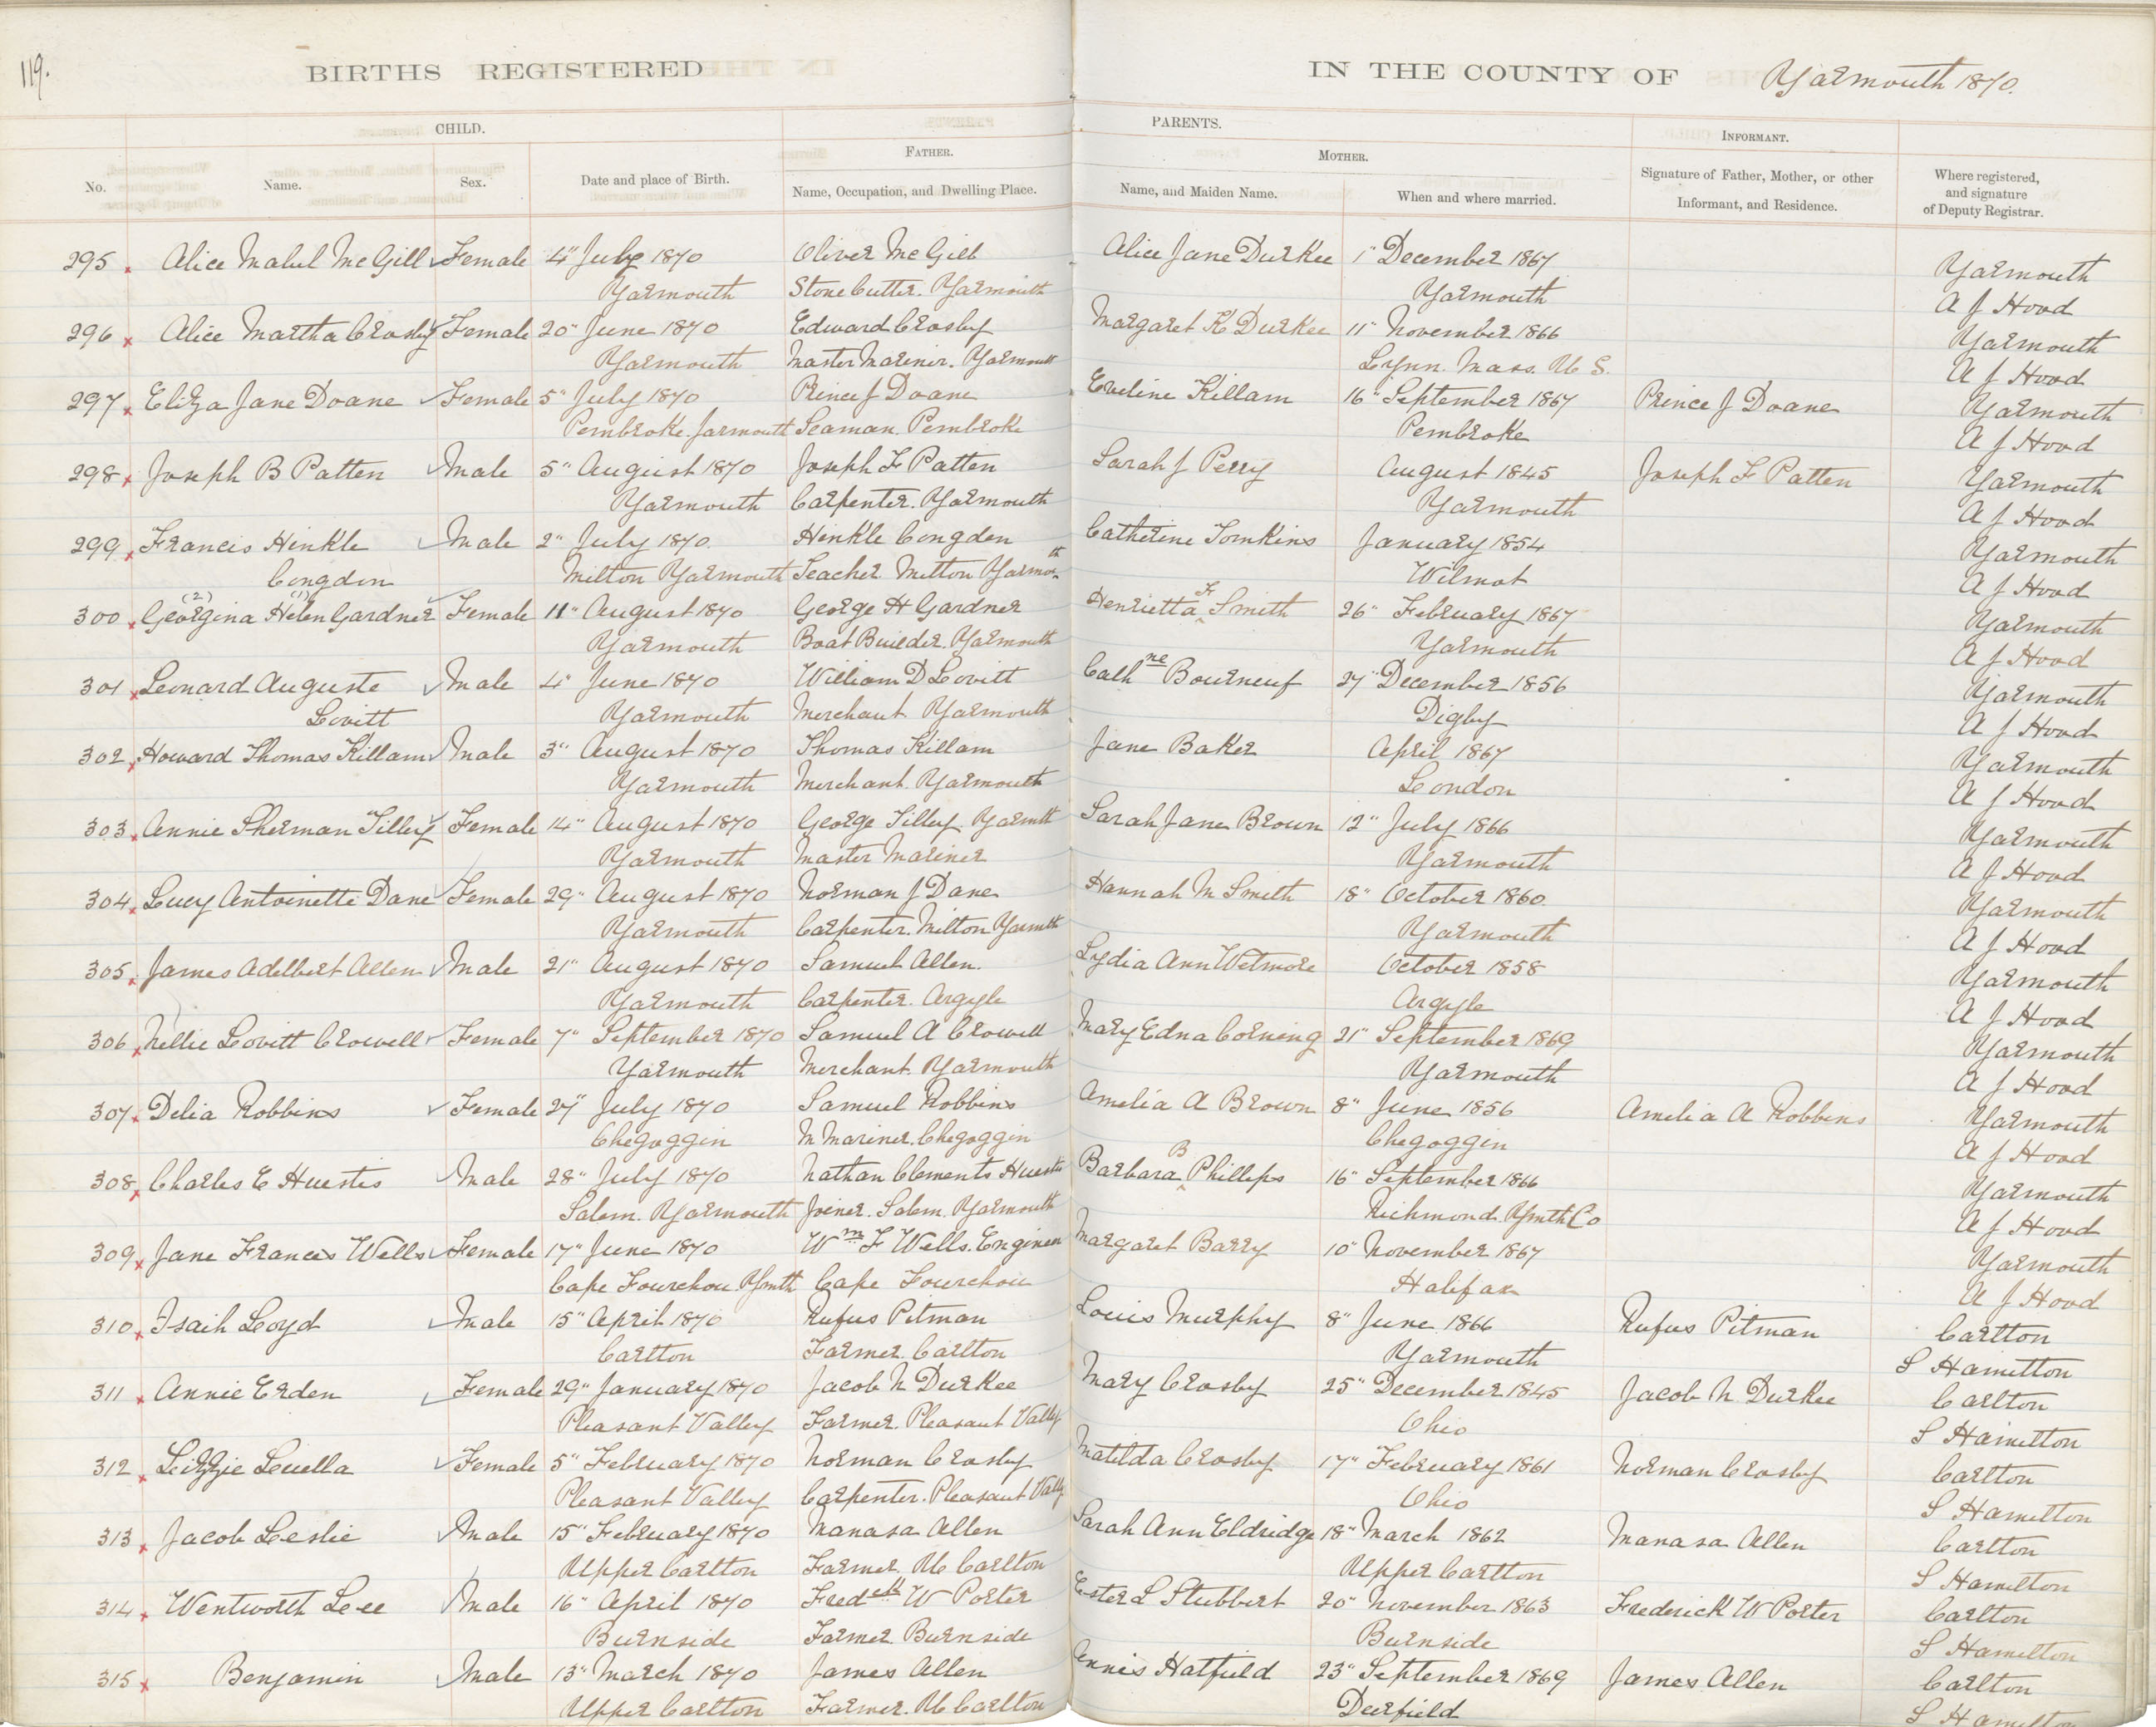 119.
BIRTHS REGISTERED
IN THE COUNTY OF Yarmouth 1870.
CHILD.
PARENTS.
INFORMANT.
FATHER.
MOTHER.
No.
Name.
Sex.
Date and place of Birth.
Name, Occupation, and Dwelling Place.
Name, and Maiden Name.
When and where married.
Signature of Father, Mother, or other
Informant, and Residence.
Where registered,
and signature
of Deputy Registrar.
295 Alice Mabel McGill Female 4" July 1870 Oliver McGill Alice Jane Durkee 1" December 1867 Yarmouth
Yarmouth Stone Cutter. Yarmouth Yarmouth A J Hood
296 Alice Martha Crosby Female 20" June 1870 Edward Crosby Margaret K Durkee 11" November 1866 Yarmouth
Yarmouth Master Mariner. Yarmouth Lynn. Mass. U S. A J Hood
297 Eliza Jane Doane Female 5" July 1870 Prince J Doane Eveline Killam 16" September 1867 Prince J Doane Yarmouth
Pembroke. Yarmouth Seaman. Pembroke Pembroke A J Hood
298 Joseph B Patten Male 5" August 1870 Joseph F Patten Sarah J Perry August 1845 Joseph F Patten Yarmouth
Yarmouth Carpenter. Yarmouth Yarmouth A J Hood
299 Francis Hinkle Male 2" July 1870. Hinkle Congdon Catherine Tomkins January 1854 Yarmouth
Congdon Milton Yarmouth Teacher Milton Yarmouth Wilmot A J Hood
300 Georgina (2) Helen (1) Gardner Female 11" August 1870 George H Gardner Henrietta F Smith 26" February 1867 Yarmouth
Yarmouth Boat Builder. Yarmouth Yarmouth A J Hood
301 Leonard Auguste Male 4" June 1870 William D Lovitt Cathne Bourneuf 27" December 1856 Yarmouth
Lovitt Yarmouth Merchant Yarmouth Digby A J Hood
302 Howard Thomas Killam Male 3" August 1870 Thomas Killam Jane Baker April 1867 Yarmouth
Yarmouth Merchant. Yarmouth London A J Hood
303 Annie Sherman Tilley Female 14" August 1870 George Tilley. Yarmth Sarah Jane Brown 12" July 1866 Yarmouth
Yarmouth Master Mariner Yarmouth A J Hood
304 Lucy Antoinette Dane Female 29" August 1870 Norman J Dane Hannah M Smith 18" October 1860. Yarmouth
Yarmouth Carpenter. Milton Yarmth Yarmouth A J Hood
305 James Adelbert Allen Male 21" August 1870 Samuel Allen. Lydia Ann Wetmore October 1858 Yarmouth
Yarmouth Carpenter. Argyle Argyle A J Hood
306 Nellie Lovitt Crowell Female 7" September 1870 Samuel A Crowell Mary Edna Corning 21" September 1869 Yarmouth
Yarmouth Merchant. Yarmouth Yarmouth A J Hood
307 Delia Robbins Female 27" July 1870 Samuel Robbins Amelia A Brown 8" June 1856 Amelia A Robbins Yarmouth
Chegoggin M Mariner. Chegoggin Chegoggin A J Hood
308 Charles E Huestis Male 28" July 1870 Nathan Clements Huestis Barbara B Phillips 16" September 1866 Yarmouth
Salem. Yarmouth Joiner. Salem. Yarmouth Richmond. Ymth Co A J Hood
309 Jane Frances Wells Female 17" June 1870 Wm F Wells. Engineer Margaret Barry 10" November 1867 Yarmouth
Cape Fourchou Ymth Cape Fourchou Halifax A J Hood
310 Isaih Loyd Male 15" April 1870 Rufus Pitman Louis Murphy 8" June 1866 Rufus Pitman Carlton
Carlton Farmer. Carlton Yarmouth S Hamilton
311 Annie Erden Female 29" January 1870 Jacob N Durkee Mary Crosby 25" December 1845 Jacob N Durkee Carlton
Pleasant Valley Farmer. Pleasant Valley Ohio S Hamilton
312 Lizzie Leuella Female 5" February 1870 Norman Crosby Matilda Crosby 17" February 1861 Norman Crosby Carlton
Pleasant Valley Carpenter. Pleasant Vally Ohio S Hamilton
313 Jacob Leslie Male 15" February 1870 Manasa Allen Sarah Ann Eldridge 18" March 1862 Manasa Allen Carlton
Upper Carlton Farmer. U Carlton Upper Carlton S Hamilton
314 Wentworth Lee Male 16" April 1870 Fredeck W Porter Ester L Stubbert 20" November 1863 Frederick W Porter Carlton
Burnside Farmer. Burnside Burnside S Hamilton
315 Benjamin Male 13" March 1870 James Allen Annis Hatfield 23" September 1869 James Allen Carlton
Upper Carlton Farmer. U Carlton Deerfield S Hamilton